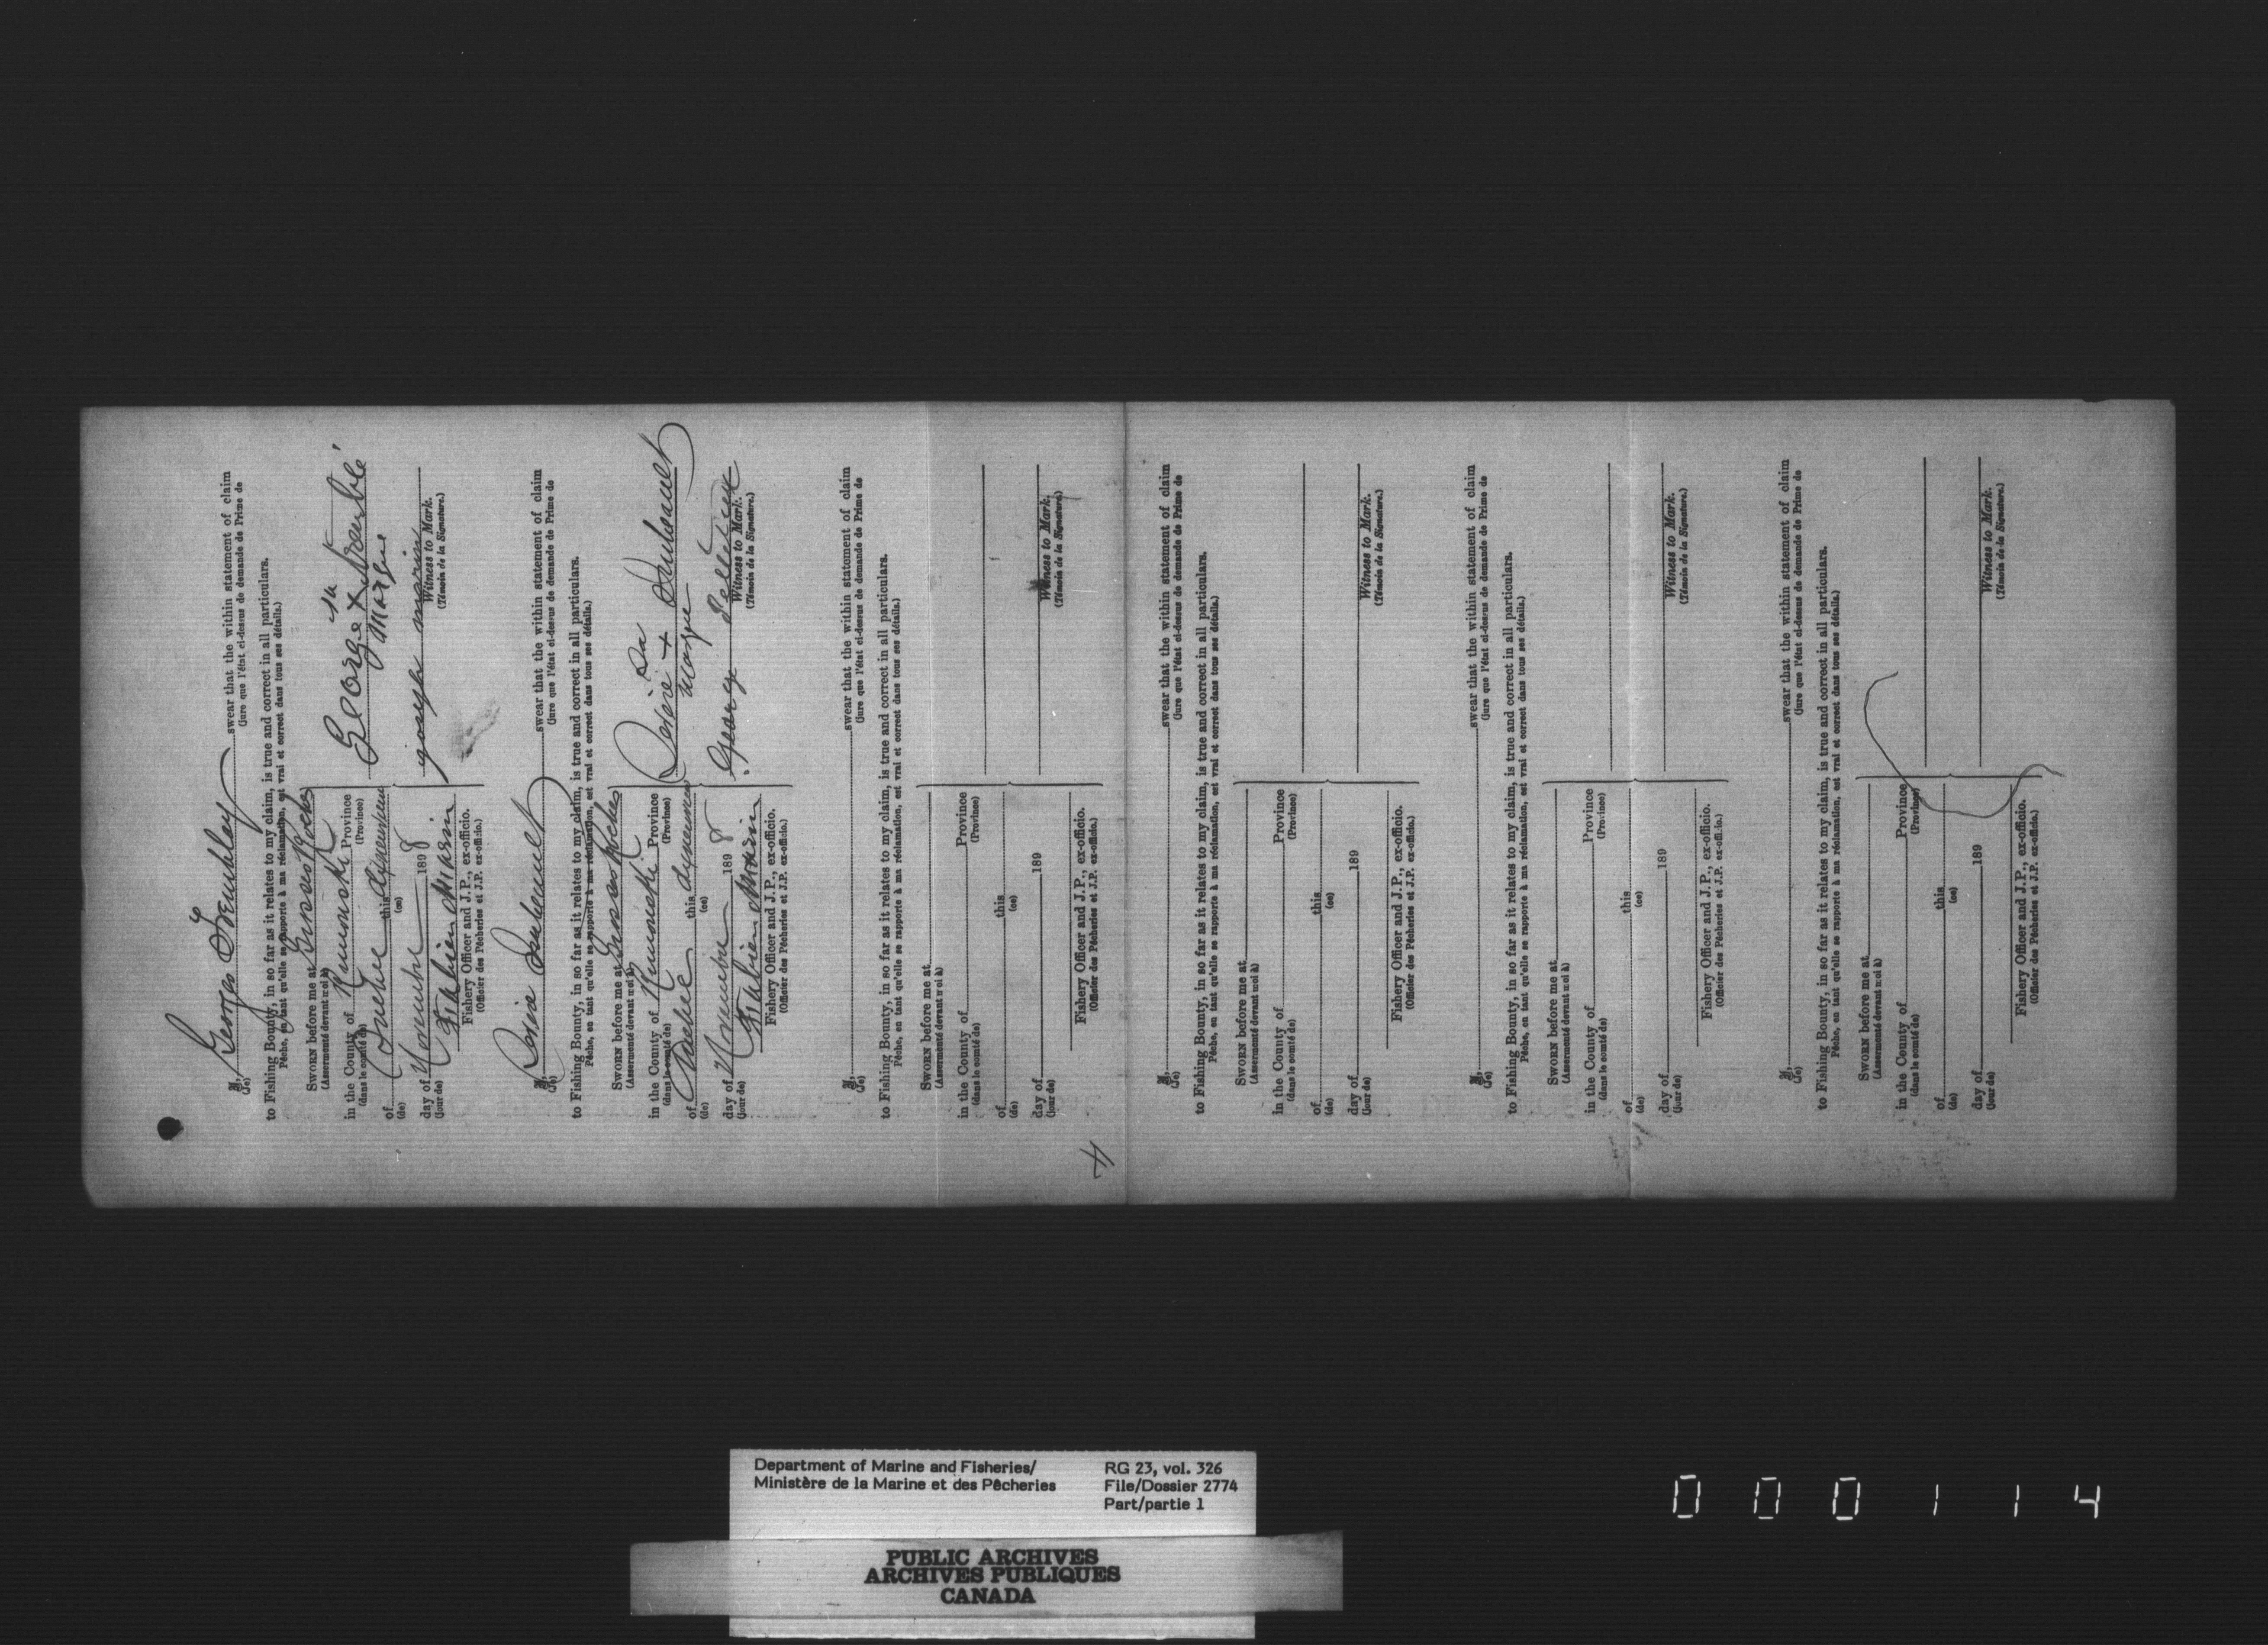 I, Georges Tremblay swear that the within statement of claim
(Je) (jure que l'état ci-dessus de demande de Prime de
to Fishing Bounty, in so far as it relates to my claim, is true and correct in all particulars.
Pêche, en tant qu'elle se rapporte à ma réclamation, est vrai et correct dans tous ses détails.)
SWORN before me at Grosses Roches
(Assermenté devant moi à)
in the County of Rimouski Province
(dans le comté de) (Province)
of Quebec this dixieme
(de) (ce)
day of Novembre 1898
(jour de)
Fabien Marin
Fishery Officer and J.P., ex-officio.
(Officier des Pêcheries et J.P. ex-officio.)
sa
George + Tremblé
Marque
joseph marin
Witness to Mark.
(Témoin de la Signature.)
I, Desire Imbeault swear that the within statement of claim
(Je) (jure que l'état ci-dessus de demande de Prime de
to Fishing Bounty, in so far as it relates to my claim, is true and correct in all particulars.
Pêche, en tant qu'elle se rapporte à ma réclamation, est vrai et correct dans tous ses détails.)
SWORN before me at Grosses Roches
(Assermenté devant moi à)
in the County of Rimouski Province
(dans le comté de) (Province)
of Quebec this dixieme
(de) (ce)
day of Novembre 1898
(jour de)
Fabien Marin
Fishery Officer and J.P., ex-officio.
(Officier des Pêcheries et J.P. ex-officio.)
sa
Desire + Imbeault
Marque
George Pelletier
Witness to Mark.
(Témoin de la Signature.)
I, swear that the within statement of claim
(Je) (jure que l'état ci-dessus de demande de Prime de
to Fishing Bounty, in so far as it relates to my claim, is true and correct in all particulars.
Pêche, en tant qu'elle se rapporte à ma réclamation, est vrai et correct dans tous ses détails.)
SWORN before me at
(Assermenté devant moi à)
in the County of Province
(dans le comté de) (Province)
of this
(de) (ce)
day of 189
(jour de)
Fishery Officer and J.P., ex-officio.
(Officier des Pêcheries et J.P. ex-officio.)
Witness to Mark.
(Témoin de la Signature.)
4
I, swear that the within statement of claim
(Je) (jure que l'état ci-dessus de demande de Prime de
to Fishing Bounty, in so far as it relates to my claim, is true and correct in all particulars.
Pêche, en tant qu'elle se rapporte à ma réclamation, est vrai et correct dans tous ses détails.)
SWORN before me at
(Assermenté devant moi à)
in the County of Province
(dans le comté de) (Province)
of this
(de) (ce)
day of 189
(jour de)
Fishery Officer and J.P., ex-officio.
(Officier des Pêcheries et J.P. ex-officio.)
Witness to Mark.
(Témoin de la Signature.)
I, swear that the within statement of claim
(Je) (jure que l'état ci-dessus de demande de Prime de
to Fishing Bounty, in so far as it relates to my claim, is true and correct in all particulars.
Pêche, en tant qu'elle se rapporte à ma réclamation, est vrai et correct dans tous ses détails.)
SWORN before me at
(Assermenté devant moi à)
in the County of Province
(dans le comté de) (Province)
of this
(de) (ce)
day of 189
(jour de)
Fishery Officer and J.P., ex-officio.
(Officier des Pêcheries et J.P. ex-officio.)
Witness to Mark.
(Témoin de la Signature.)
I, swear that the within statement of claim
(Je) (jure que l'état ci-dessus de demande de Prime de
to Fishing Bounty, in so far as it relates to my claim, is true and correct in all particulars.
Pêche, en tant qu'elle se rapporte à ma réclamation, est vrai et correct dans tous ses détails.)
SWORN before me at
(Assermenté devant moi à)
in the County of Province
(dans le comté de) (Province)
of this
(de) (ce)
day of 189
(jour de)
Fishery Officer and J.P., ex-officio.
(Officier des Pêcheries et J.P. ex-officio.)
Witness to Mark.
(Témoin de la Signature.)
Department of Marine and Fisheries/ RG 23, vol. 326
Ministère de la Marine et des Pêcheries File/Dossier 2774
Part/partie 1
PUBLIC ARCHIVES
ARCHIVES PUBLIQUES
CANADA
000114